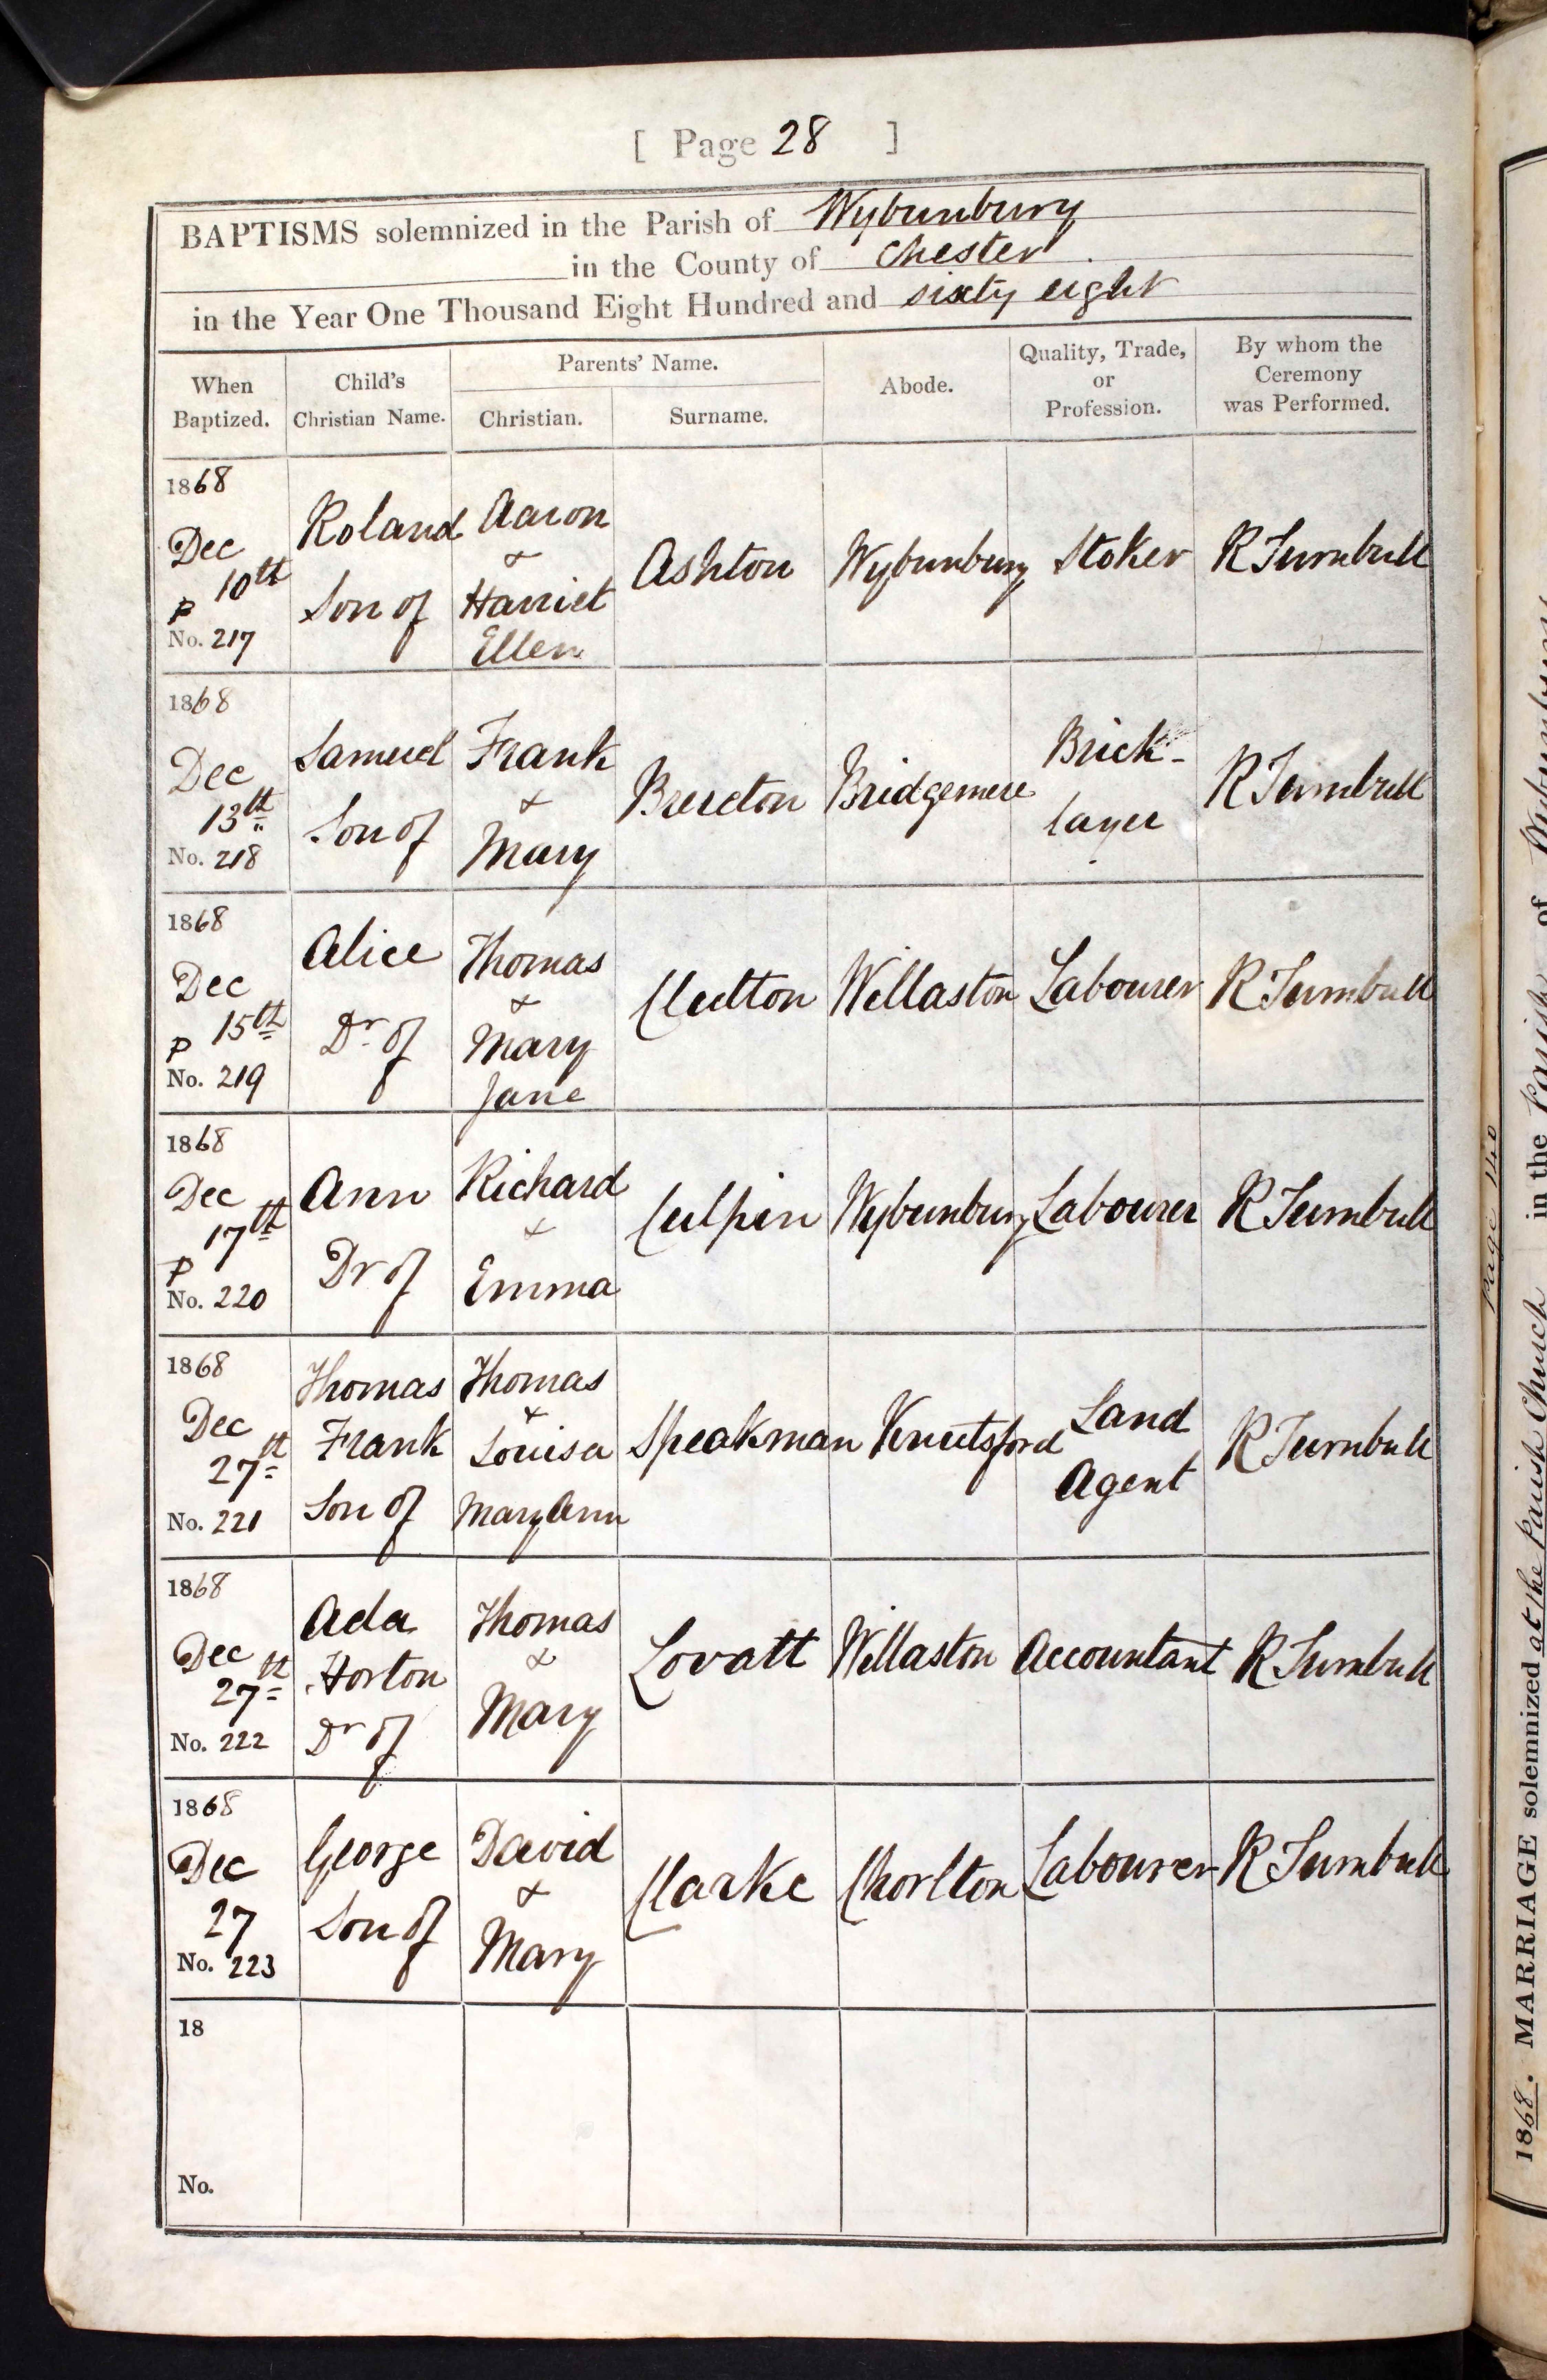 [ Page 28 ]
BAPTISMS solemnized in the Parish of Wybunbury
in the County of Chester
in the Year One Thousand Eight Hundred and sixty eight
When Baptized. Child's Christian Name. Parents' Name. Christian. Surname. Abode. Quality, Trade, or Profession. By whom the Ceremony was Performed.
1868 Dec 10th P No. 217 Roland Son of Aaron & Harriet Ellen Ashton Wybunbury Stoker R Turnbull
1868 Dec 13th No. 218 Samuel Son of Frank & Mary Brereton Bridgemere Brick-layer R Turnbull
1868 Dec 15th P No. 219 Alice Dr of Thomas & Mary Jane Clutton Willaston Labourer R Turnbull
1868 Dec 17th P No. 220 Ann Dr of Richard & Emma Culpin Wybunbury Labourer R Turnbull
1868 Dec 27th No. 221 Thomas Frank Son of Thomas & Louisa Mary Ann Speakman Knutsford Land Agent R Turnbull
1868 Dec 27th No. 222 Ada Horton Dr of Thomas & Mary Lovatt Willaston Accountant R Turnbull
1868 Dec 27 No. 223 George Son of David & Mary Clarke Chorlton Labourer R Turnbull
18 No.
Page 140
1868. MARRIAGE solemnized at the Parish Church in the Parish of Wybunbury